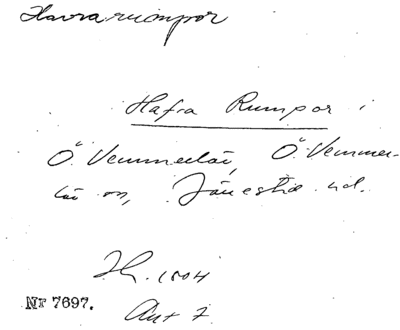 Havrarumpor
Hafra Rumpor i
Ö. Vemmerlöv, Ö. Vemmer-
löv sn, Järrestad hd.
J.h. 1804
Akt 7
Nr 7697.